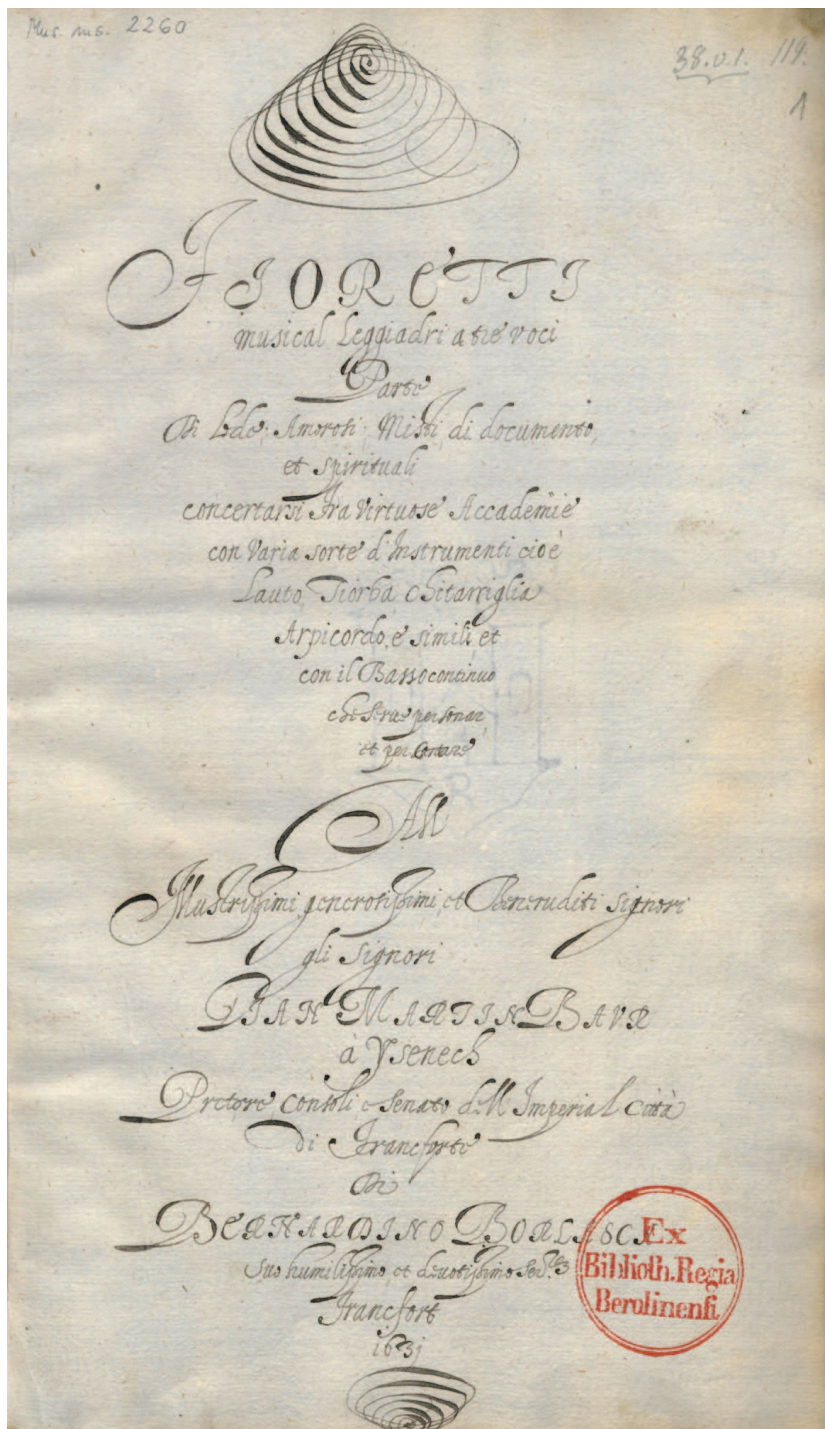 Mus. ms. 2260
38.v.1. 119.
1
FIORETTI
musical Leggiadri a tre voci
Parte
Di Lode, Amorosi, Misti, di documento,
et spirituali
concertarsi fra virtuose Accademie
con Varia sorte d'Instrumenti cioè
Lauto, Tiorba Chitarriglia
Arpicordo, e simili, et
con il Basso continuo
che serue per sonar,
et per Cantare
All
Illustrissimi, generosissimi, et Beneruditi signori
gli signori
GIAN MARTIN BAVR
à Ysenech
Pretore, Consoli e Senato dell Imperial Città
di Francforte
Di
BERNARDINO BORLASCA
Suo humilissimo, et deuotissimo
Francfort
1631
Ex
Biblioth. Regia
Berolinensi.